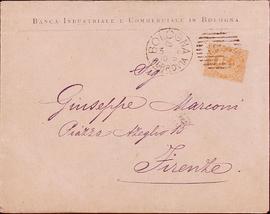 BANCA INDUSTRIALE E COMMERCIALE IN BOLOGNA
BOLOGNA
FERROVIA
Sig.
Giuseppe Marconi
Piazza Azeglio 13
Firenze